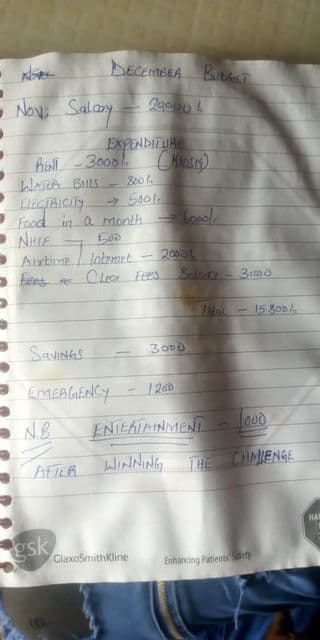 DECEMBER BUDGET
Nov; Salary - 29000/-
EXPENDITURE
RENT - 3000/- (KIOSK)
WATER BILLS - 800/-
ELECTRICITY → 500/-
Food in a month → 6000/-
NHIF - 500
Airtime / Internet - 2000/-
Fees - Clear Fees Balance - 3000
Total - 15800/-
SAVINGS - 3000
EMERGENCY - 1200
N.B ENTERTAINMENT - 1000
AFTER WINNING THE CHALLENGE
gsk GlaxoSmithKline Enhancing Patients' Safety